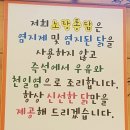 저희 노랑통닭은
염지제 및 염지된 닭을
사용하지 않고
즉석에서 우유와
천일염으로 조리합니다.
항상 신선한 닭만을
제공해 드리겠습니다